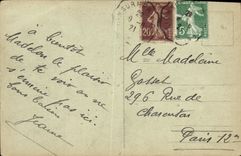 à bientôt
Madelon le plaisir
de te voir on ne
s'ennuie pas ici
bons baisers
Jeanne
20
5
21
Mlle Madeleine
Gosset
296 Rue de
Charenton
Paris 12